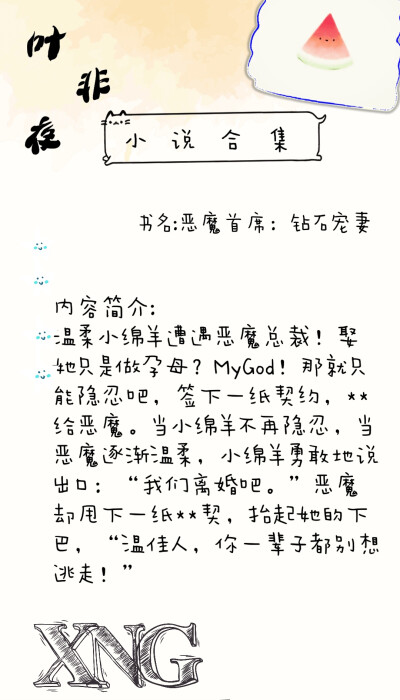 叶非夜
小说合集
书名:恶魔首席：钻石宠妻
内容简介:
温柔小绵羊遭遇恶魔总裁！娶
她只是做孕母？MyGod！那就只
能隐忍吧，签下一纸契约，**
给恶魔。当小绵羊不再隐忍，当
恶魔逐渐温柔，小绵羊勇敢地说
出口：“我们离婚吧。”恶魔
却甩下一纸**契，抬起她的下
巴，“温佳人，你一辈子都别想
逃走！”
XNG